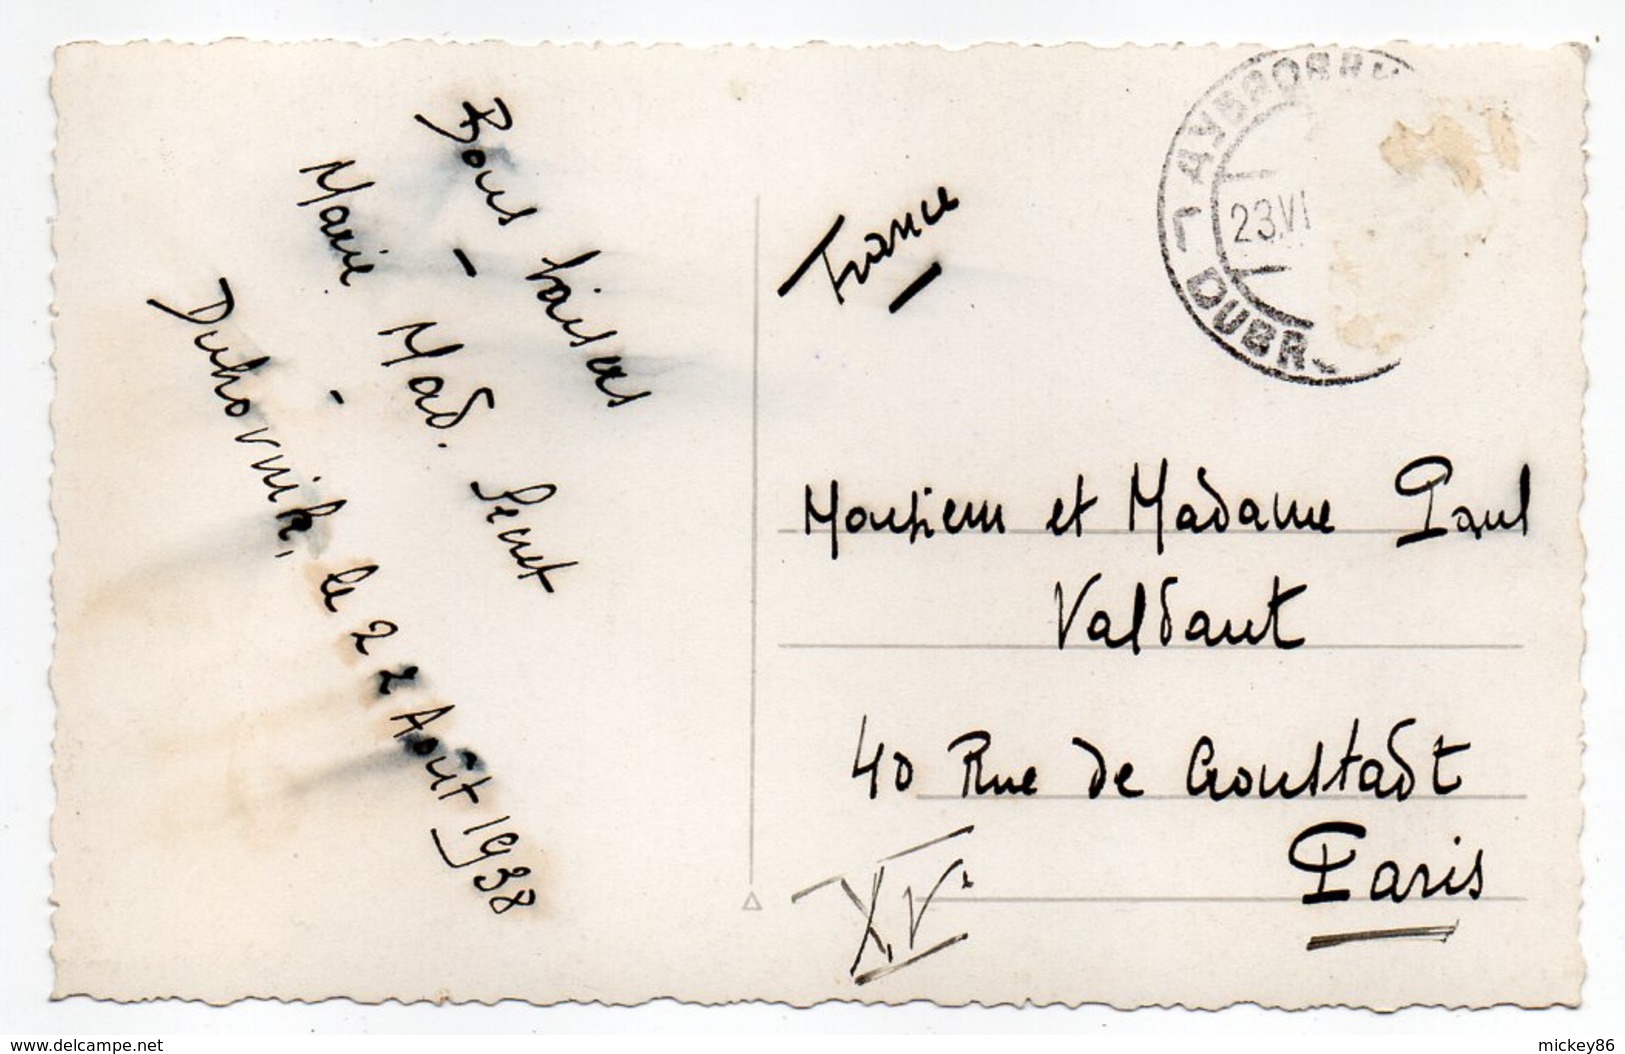 Bons baisers
Marie - Mad. Senet
Dubrovnik, le 22 Août 1938
France
23.VI
DUBR
Monsieur et Madame Paul
Valdant
40 Rue de Cronstadt
Paris
XVe
www.delcampe.net
mickey86